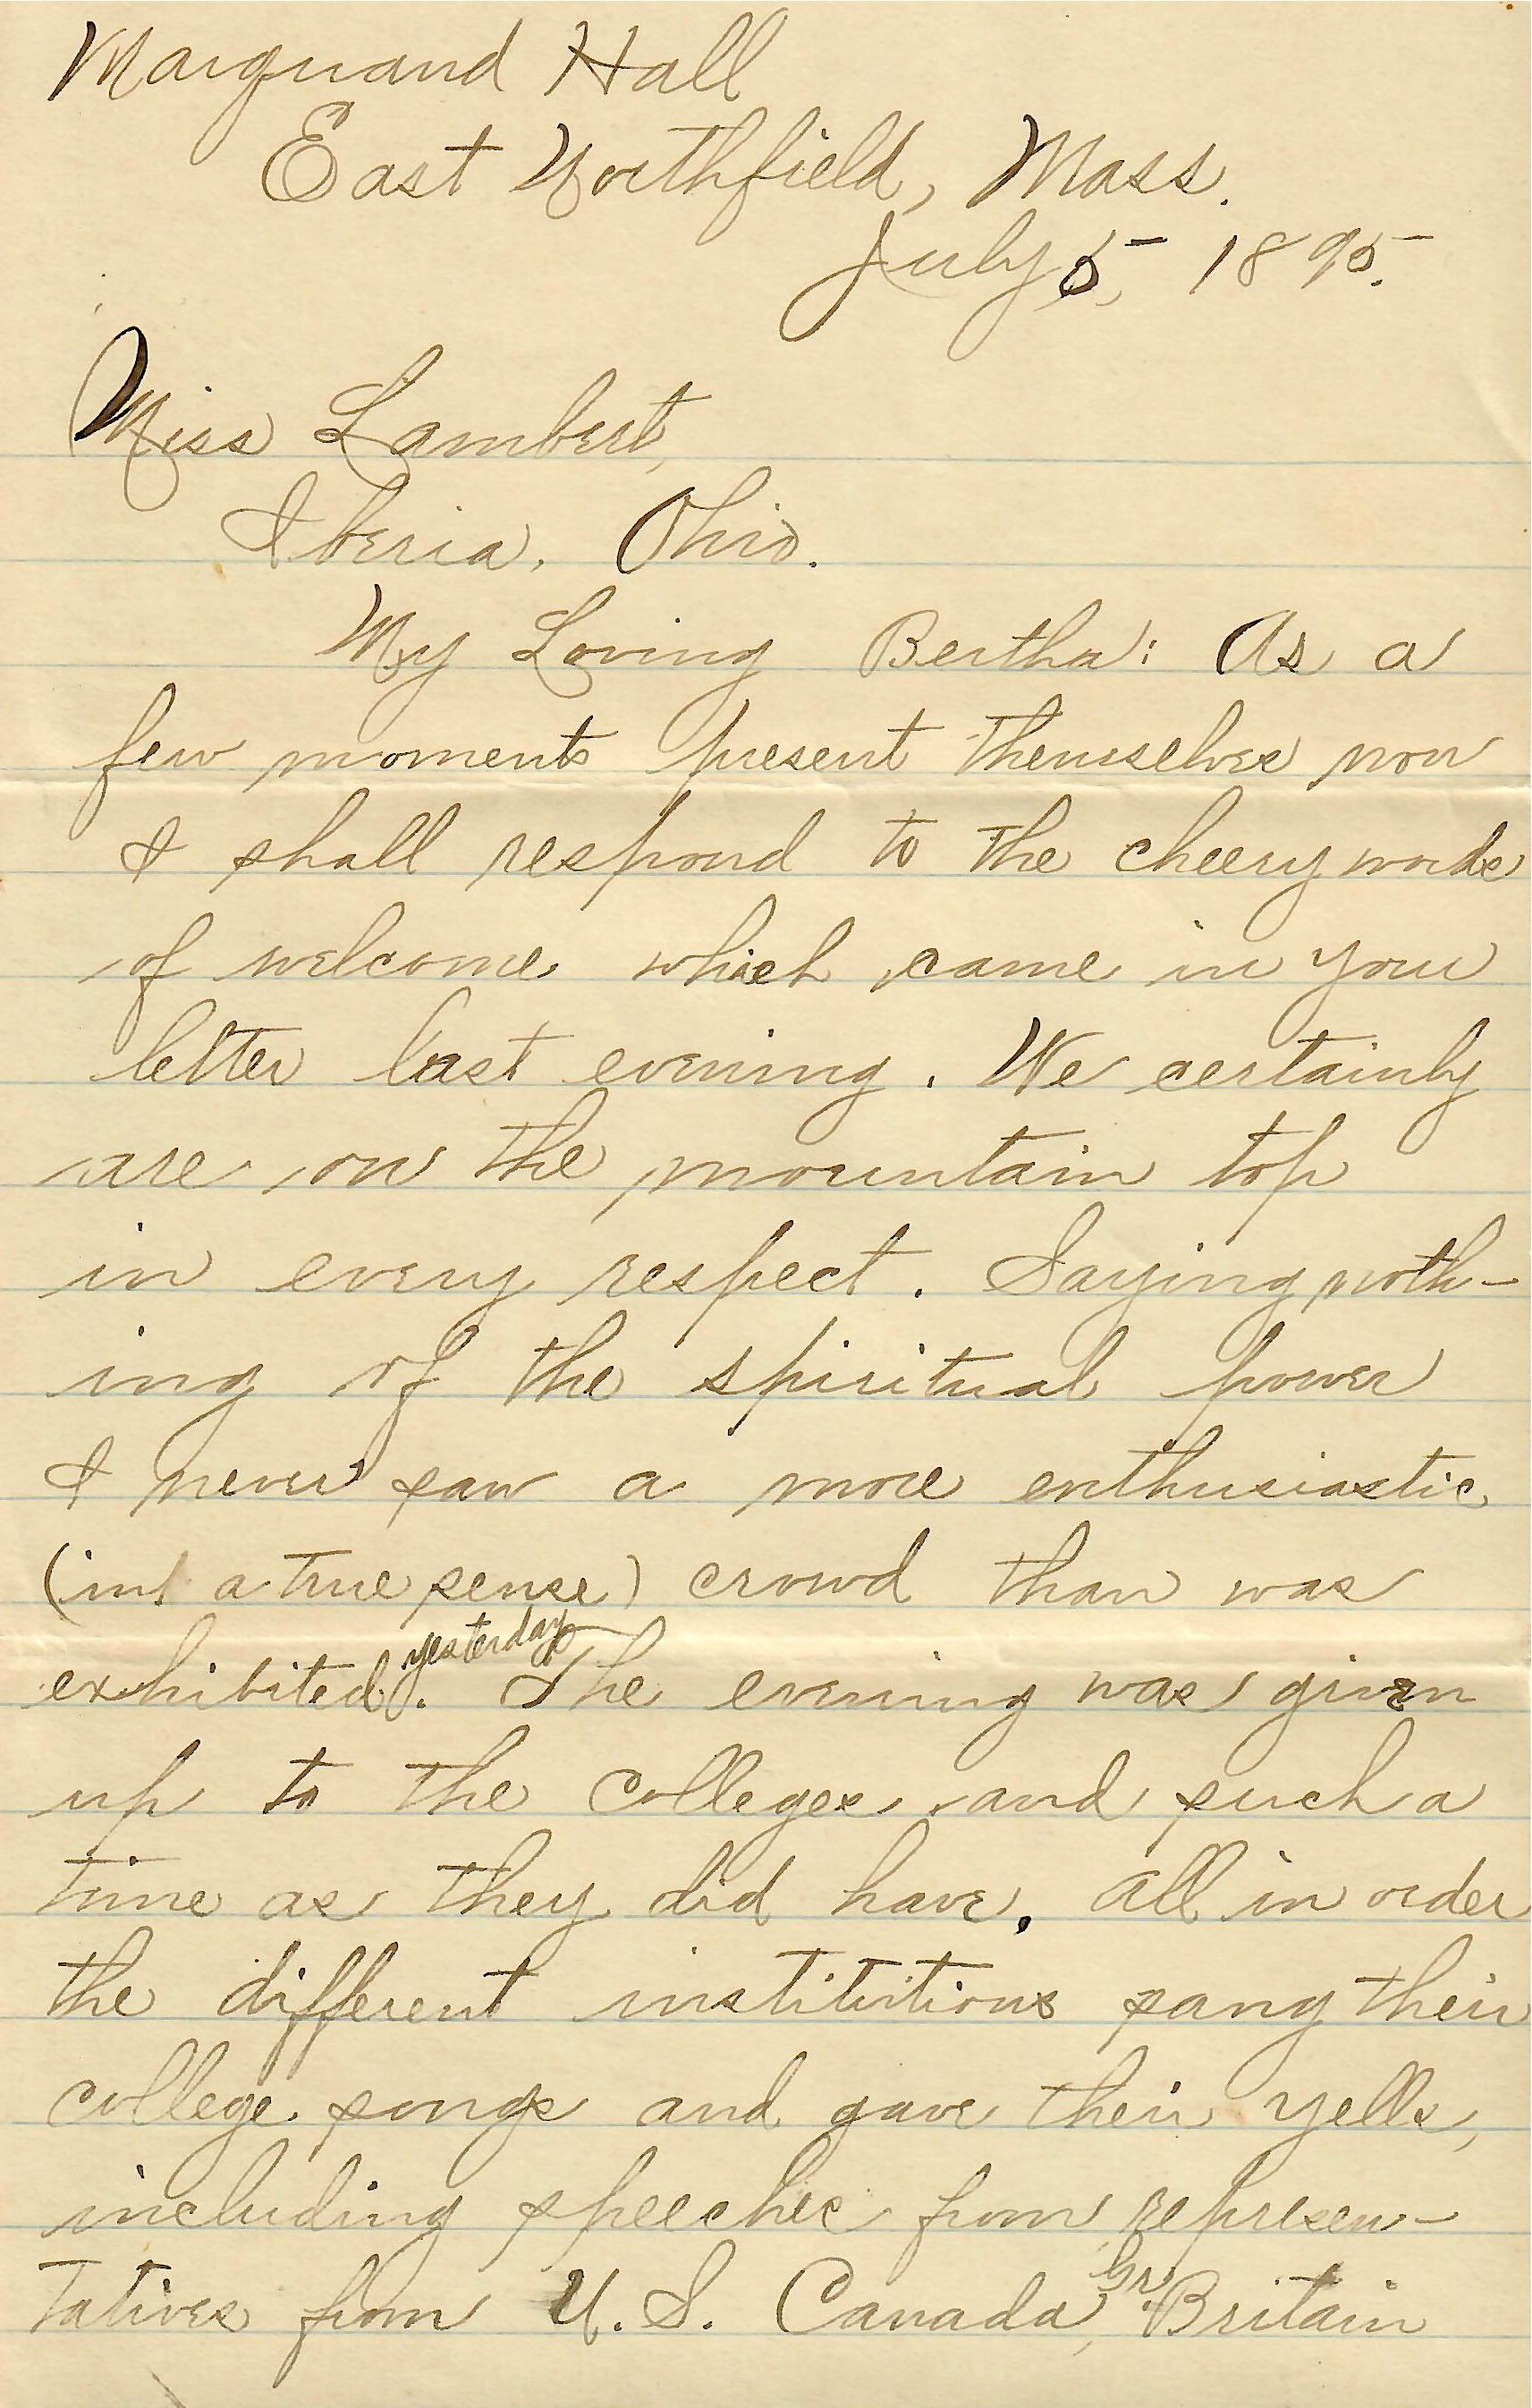 Marquand Hall
East Northfield, Mass.
July 5, 1895.
Miss Lambert,
Iberia, Ohio.
My Loving Bertha: As a
few moments present themselves now
I shall respond to the cheery words
of welcome which came in your
letter last evening. We certainly
are on the mountain top
in every respect. Saying noth-
ing of the spiritual power
I never saw a more enthusiastic
(in a true sense) crowd than was
exhibited yesterday. The evening was given
up to the colleges and such a
time as they did have. All in order
the different institutions sang their
college songs and gave their yells,
including speeches from represen-
tatives from U.S. Canada, Gr. Britain